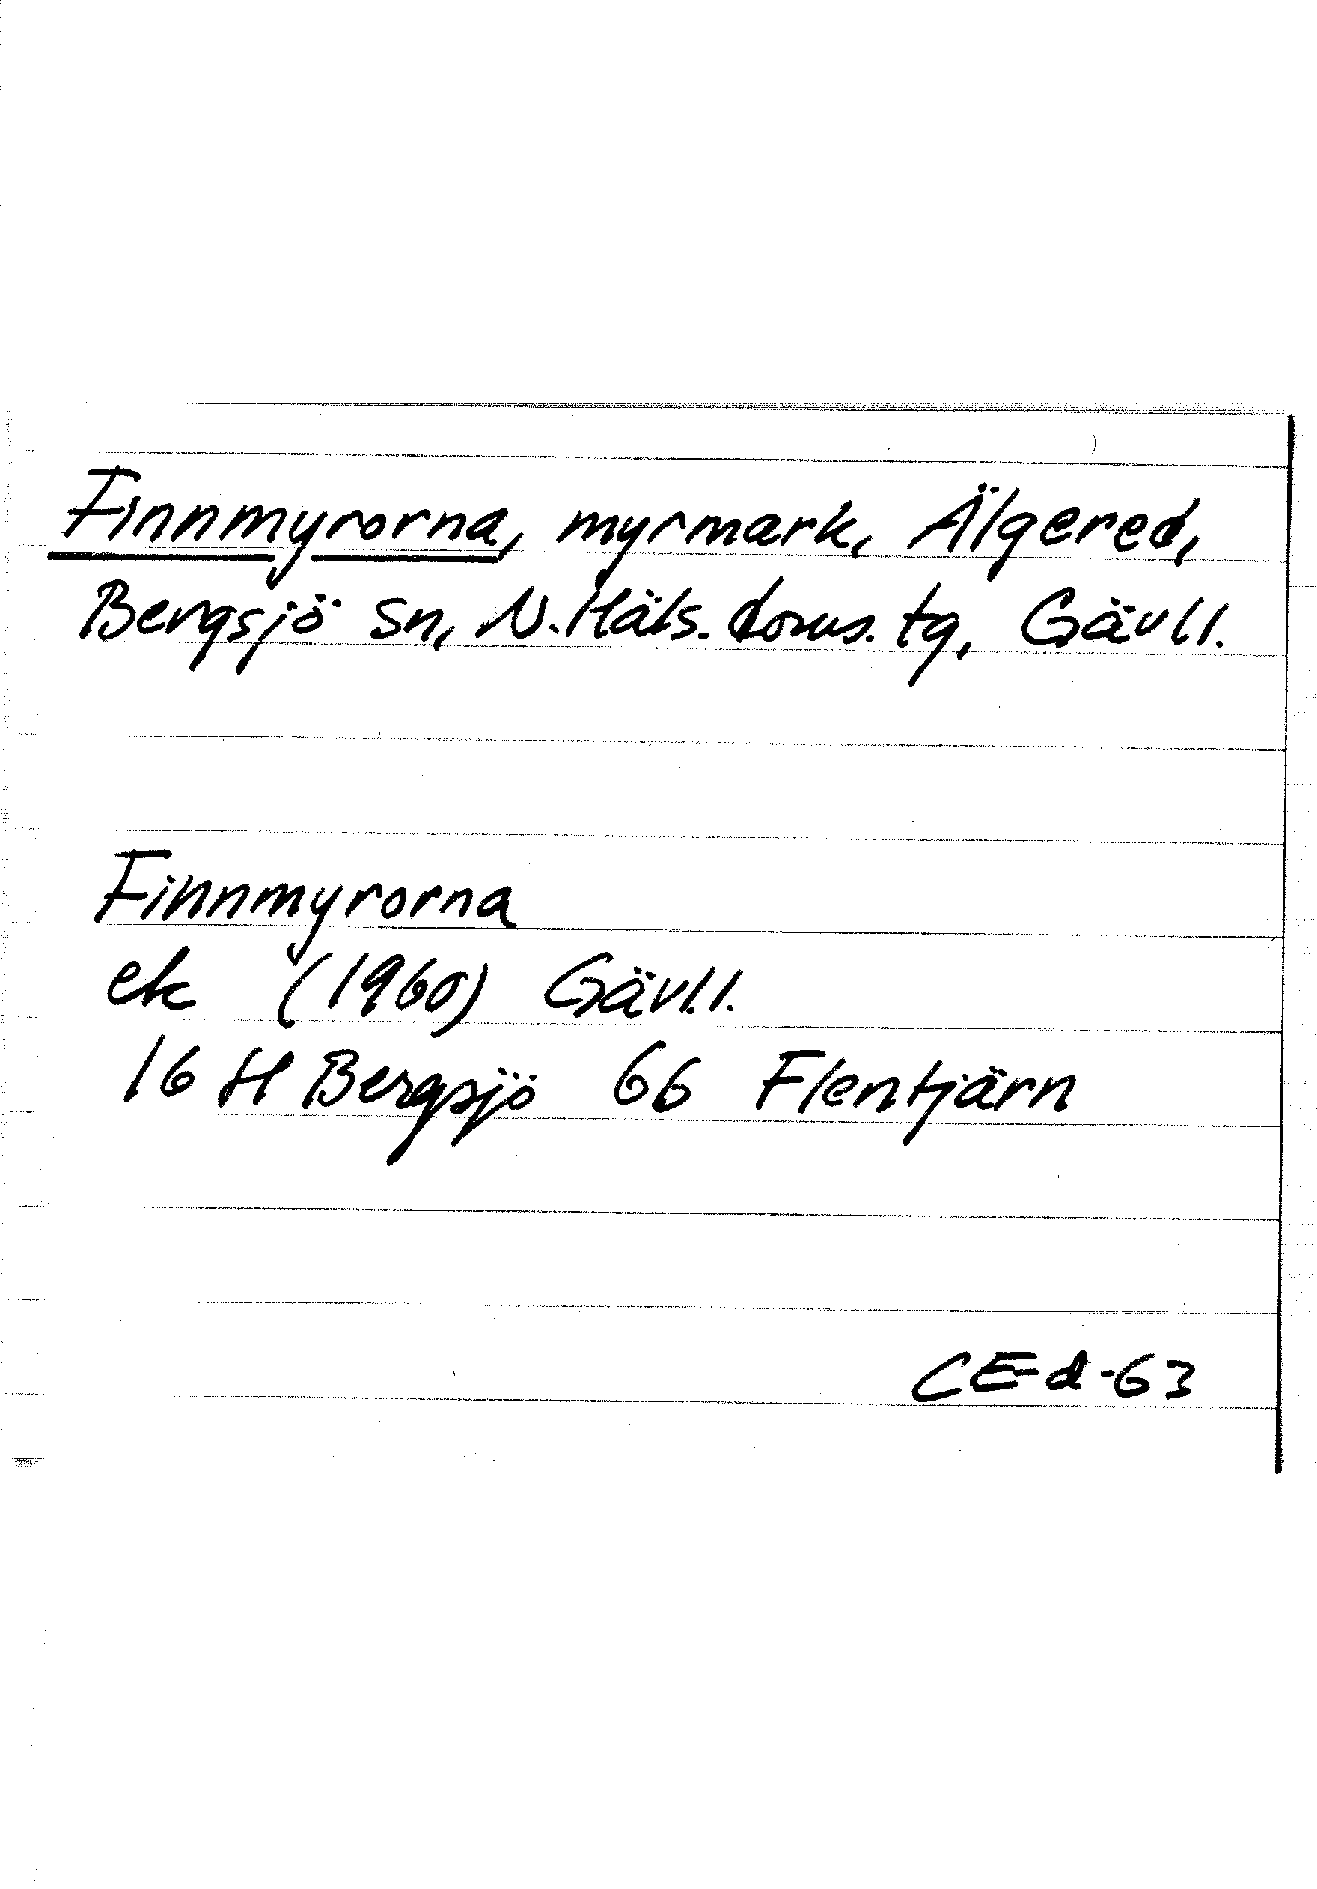 Finnmyrorna, myrmark, Älgered,
Bergsjö sn, N. Häls. doms. tg, Gävl l.
Finnmyrorna
ek (1960) Gävl. l.
16 H Bergsjö 66 Flentjärn
CE-d-63